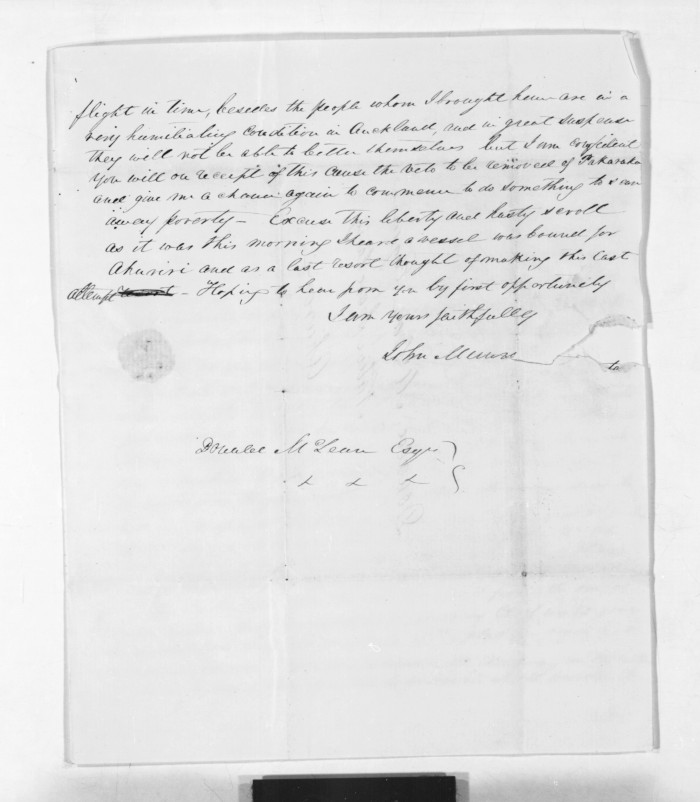 flight in time, besides the people whom I brought here are in a
very humiliating condition in Auckland, and in great suspense
they will not be able to better themselves but I am confident
you will on receipt of this cause the veto to be removed of Pakaraka
and give me a chance again to commence to do something to
away poverty - Excuse this liberty and hasty scroll
as it was this morning I heard a vessel was bound for
Ahuriri and as a last resort thought of making this last
attempt - Hoping to hear from you by first opportunity
I am yours faithfully
John Munro
Donald McLean Esqr
x x x